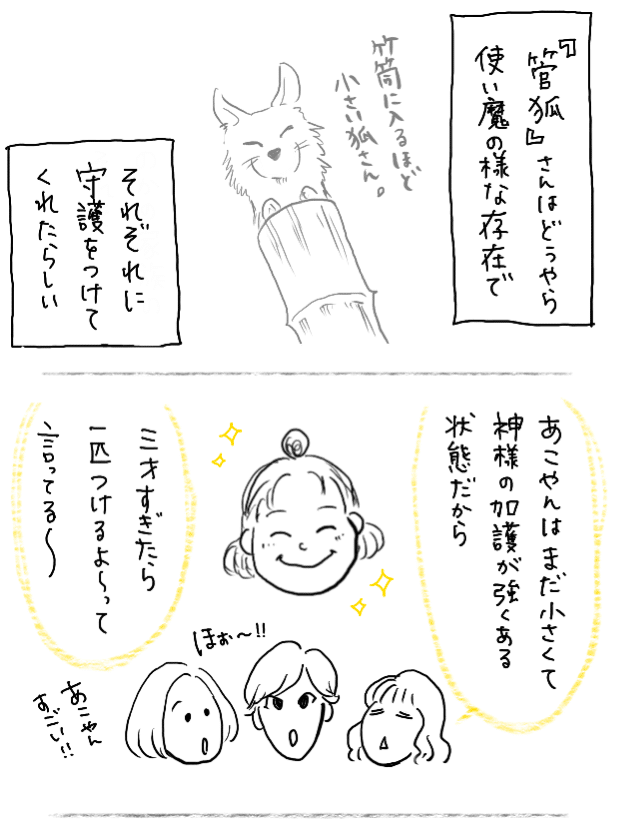 『管狐』さんはどうやら
使い魔の様な存在で
竹筒に入るほど
小さい狐さん。
それぞれに
守護をつけて
くれたらしい
あこやんはまだ小さくて
神様の加護が強くある
状態だから
三才すぎたら
一匹つけるよ〜って
言ってる〜
ほぉ〜!!
あこやん
すごーい!!